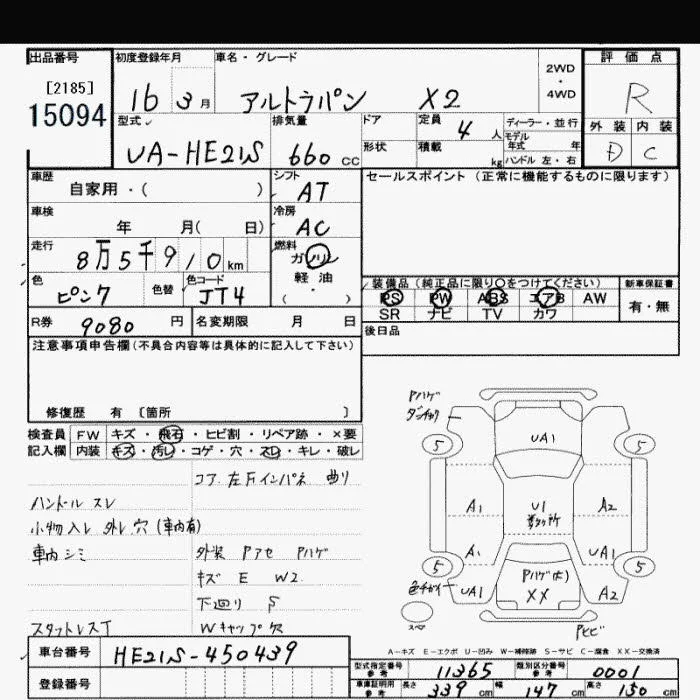 出品番号 初度登録年月 車名・グレード 2WD・4WD 評価点
[2185]
15094
16 3月 アルトラパン X2 R
型式 排気量 ドア 定員 4人 ディーラー・並行 外装 内装
モデル年式 年
UA-HE21S 660cc 形状 積載 kg ハンドル 左・右 D C
車歴 シフト セールスポイント (正常に機能するものに限ります)
自家用・( ) AT
車検 冷房
年 月( 日) AC
走行 燃料
8万5千910km ガソリン
軽油
( )
色 色替 色コード 装備品 (純正品に限り○をつけてください) 新車保証書
ピンク JT4 PS PW ABS エアB AW 有・無
SR ナビ TV カワ
R券 9080円 名変期限 月 日 後日品
注意事項申告欄 (不具合内容等は具体的に記入して下さい)
修復歴 有 〔箇所 〕
検査員 FW キズ・飛石・ヒビ割・リペア跡・×要
記入欄 内装 キズ・汚レ・コゲ・穴・スレ・キレ・破レ
コア、左Fインパネ 曲リ
ハンドル スレ
小物入レ 外レ 穴 (車内有)
車内 シミ 外装 Pアセ Pハゲ
キズ E W2
下廻リ S
スタットレスT Wキャップ欠
Pハゲ
5 UA1 5
A1 U1 A2
A1 UA1
5 Pハゲ(大) 5
色チガイ UA1 XX A2
スペア Pヒビ
A-キズ E-エクボ U-凹み W-補修跡 S-サビ C-腐食 XX-交換済
車台番号 HE21S-450439
登録番号
型式指定番号 参考 11365 類別区分番号 参考 0001
車庫証明用 参考 長さ 339cm 幅 147cm 高さ 150cm